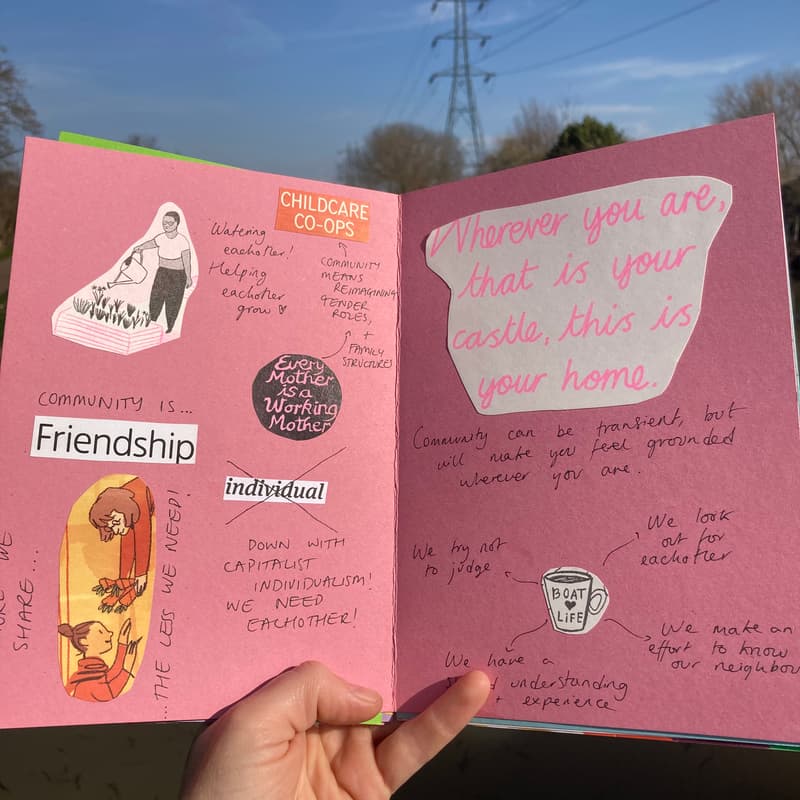 Watering
eachother!
Helping
eachother
grow
CHILDCARE
CO-OPS
COMMUNITY
MEANS
REIMAGINING
GENDER
ROLES,
+
FAMILY
STRUCTURES
Every
Mother
is a
Working
Mother
COMMUNITY IS...
Friendship
individual
DOWN WITH
CAPITALIST
INDIVIDUALISM!
WE NEED
EACHOTHER!
WE
SHARE...
...THE LESS WE NEED!
Wherever you are,
that is your
castle, this is
your home.
Community can be transient, but
will make you feel grounded
wherever you are.
We try not
to judge
We look
out for
eachother
BOAT
LIFE
We have a
understanding
+ experience
We make an
effort to know
our neighbou